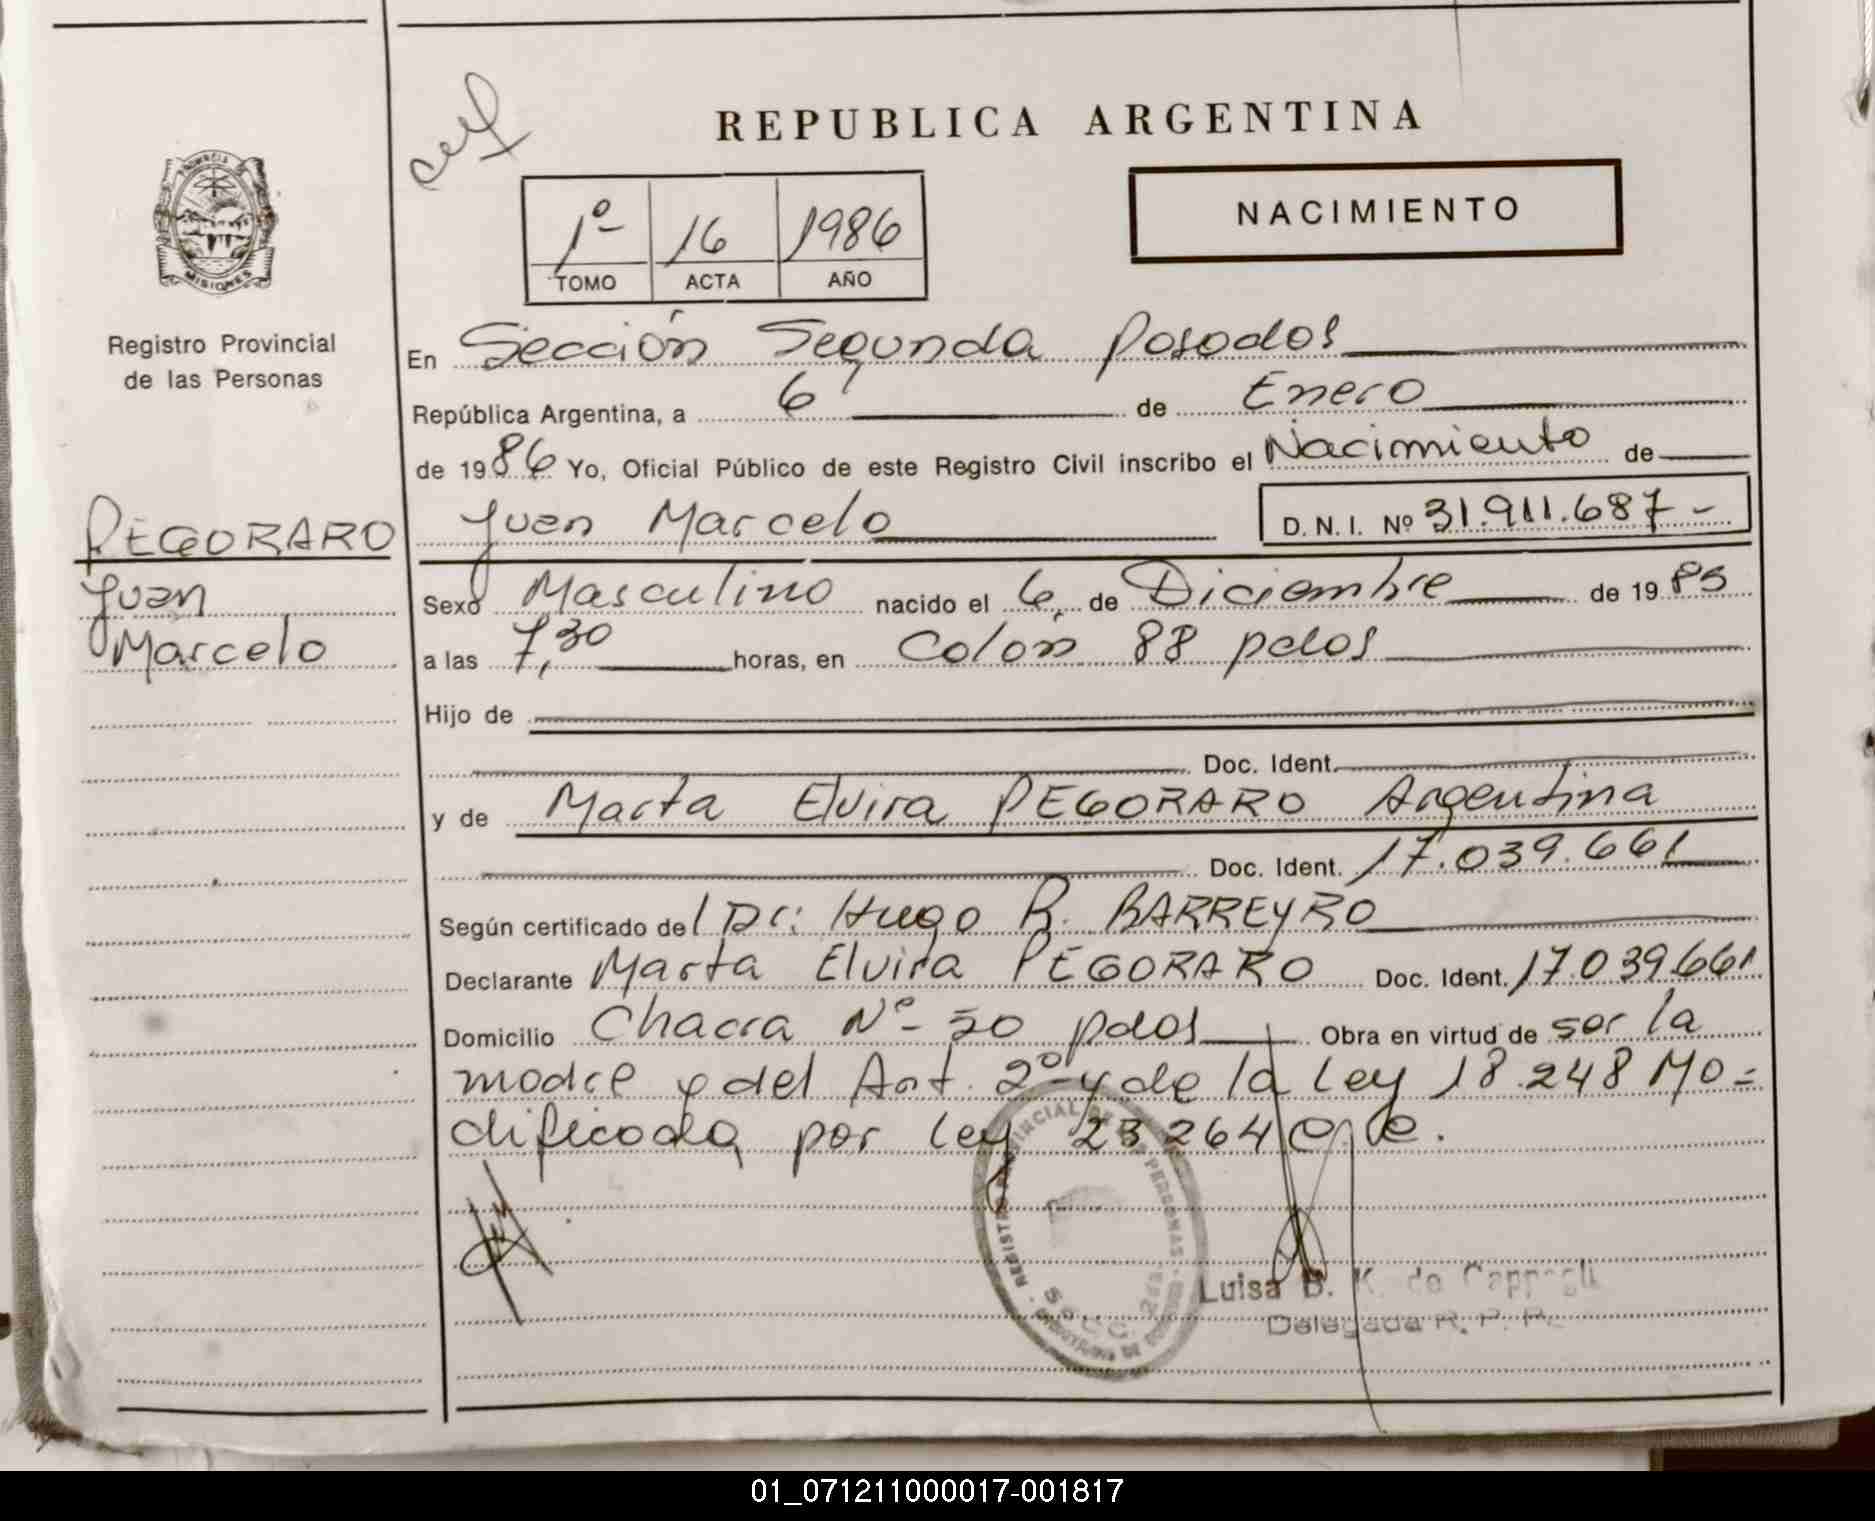 REPUBLICA ARGENTINA
NACIMIENTO
1º 16 1986
TOMO ACTA AÑO
PROVINCIA DE
MISIONES
Registro Provincial
de las Personas
En Sección Segunda Posadas
República Argentina, a 6 de Enero
de 1986 Yo, Oficial Público de este Registro Civil inscribo el Nacimiento de
PEGORARO
Juan
Marcelo
Juan Marcelo D.N.I. Nº 31.911.687-
Sexo Masculino nacido el 6 de Diciembre de 1985
a las 7,30 horas, en Colón 88 pdas
Hijo de
Doc. Ident.
y de Marta Elvira PEGORARO Argentina
Doc. Ident. 17.039.661
Según certificado del Dr: Hugo R. BARREYRO
Declarante Marta Elvira PEGORARO Doc. Ident. 17.039.661
Domicilio Chacra Nº 50 pdas Obra en virtud de ser la
madre y del Art. 2º y de la Ley 18.248 Mo=
dificada por Ley 23264
REGISTRO PROVINCIAL DE LAS PERSONAS
Luisa B. K. de
Delegada R. P. P.
01_071211000017-001817